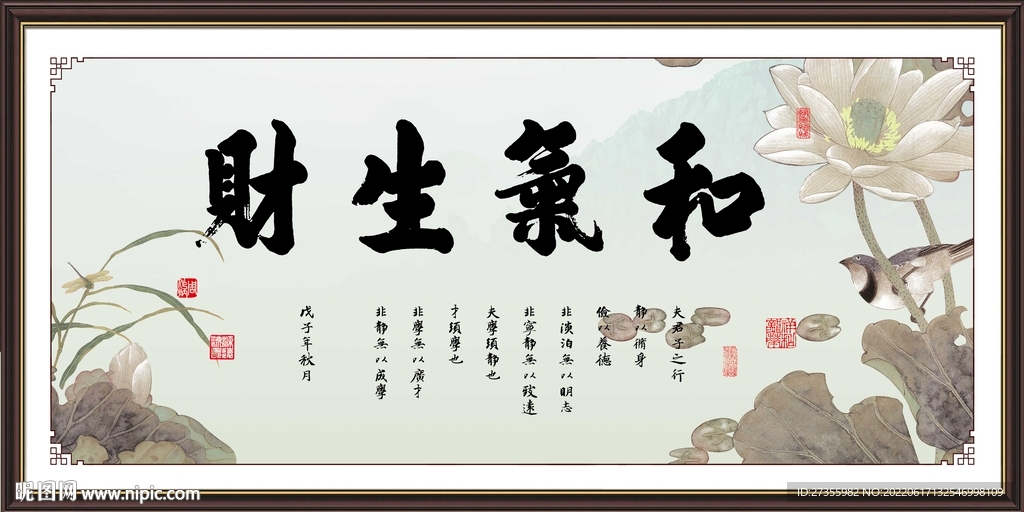 和氣生財
夫君子之行
靜以脩身
儉以養德
非淡泊無以明志
非寧靜無以致遠
夫學須靜也
才須學也
非學無以廣才
非靜無以成學
戊子年秋月
昵图网 www.nipic.com
ID:27355982 NO:20220617132546998109